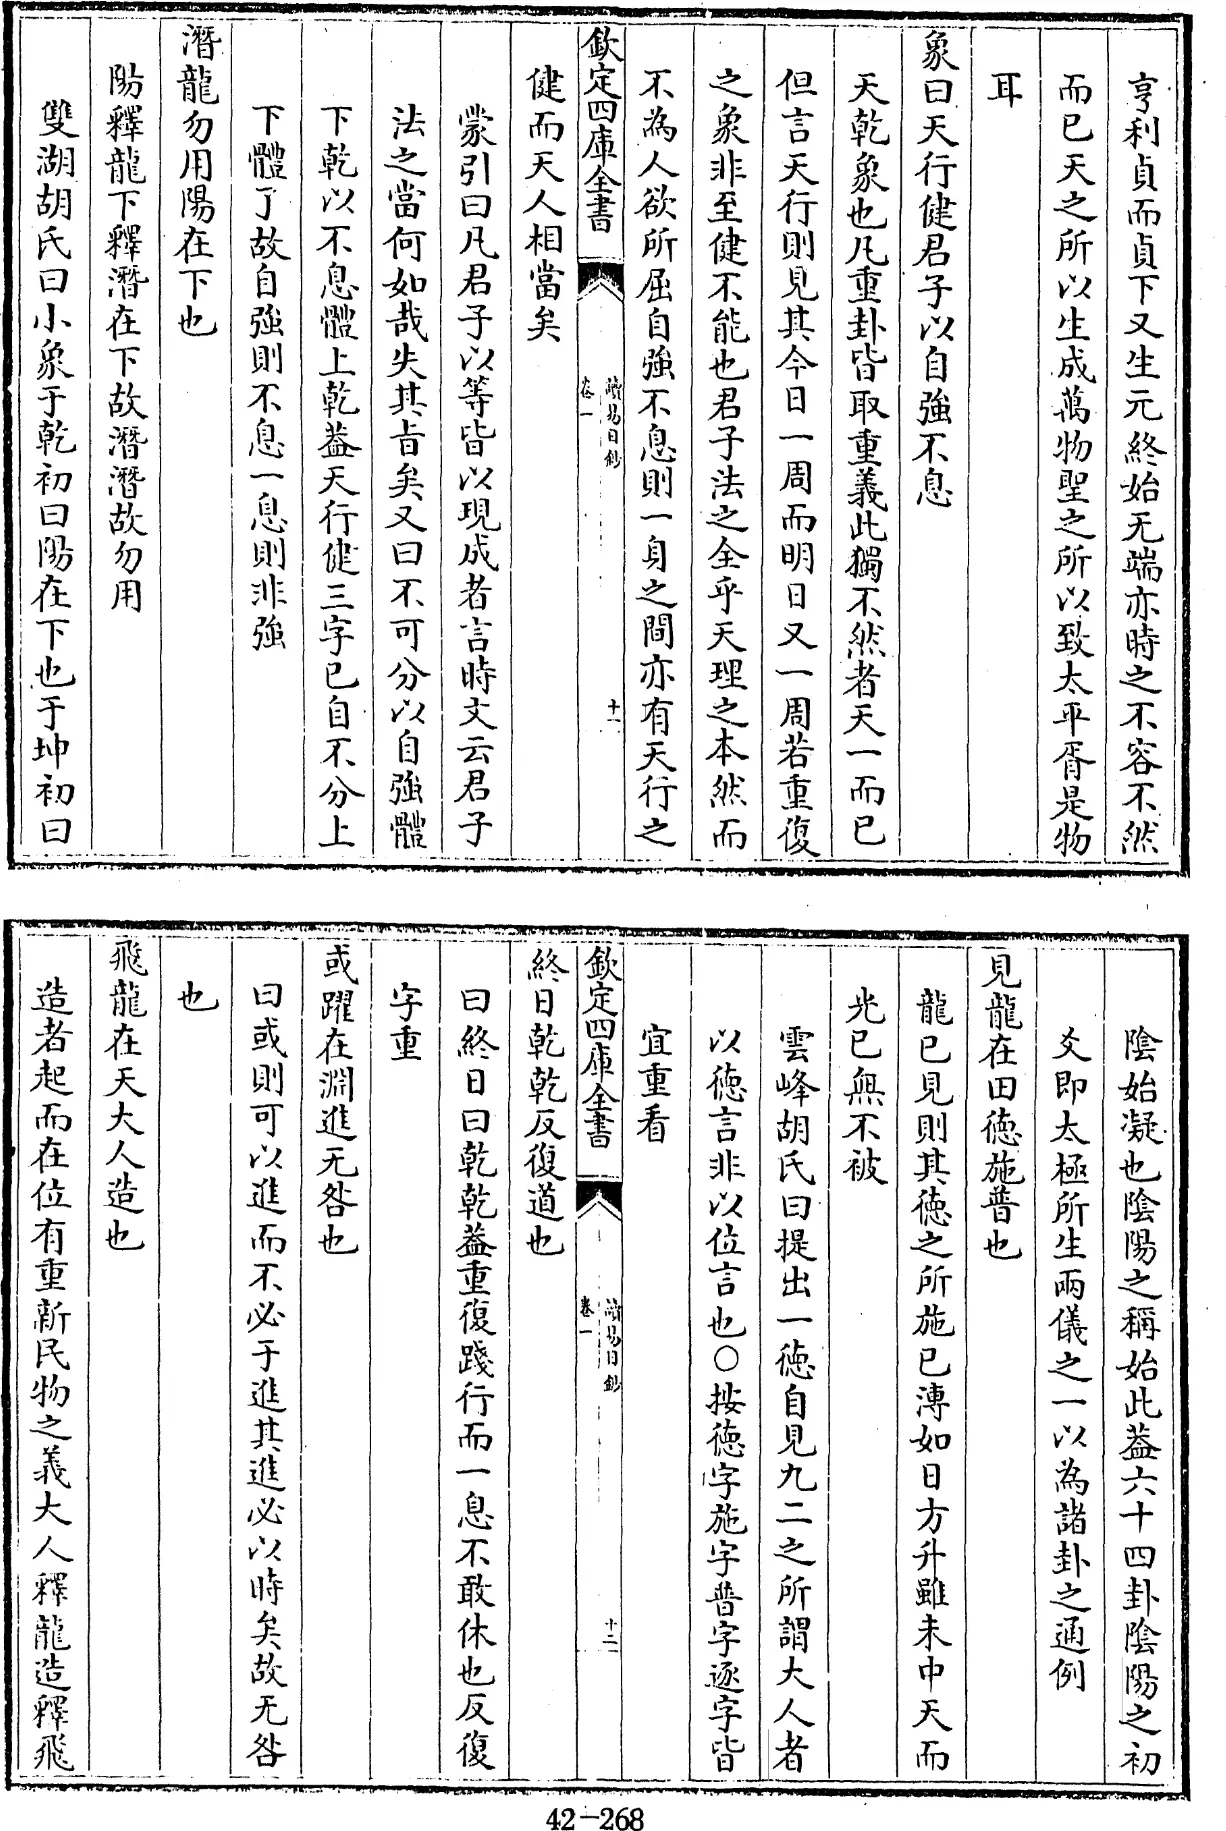 亨利貞而貞下又生元終始无端亦時之不容不然
而已天之所以生成萬物聖之所以致太平胥是物
耳
象曰天行健君子以自強不息
天乾象也凡重卦皆取重義此獨不然者天一而已
但言天行則見其今日一周而明日又一周若重復
之象非至健不能也君子法之全乎天理之本然而
不為人欲所屈自強不息則一身之間亦有天行之
欽定四庫全書
讀易日鈔
卷一
十一
健而天人相當矣
蒙引曰凡君子以等皆以現成者言時文云君子
法之當何如哉失其旨矣又曰不可分以自強體
下乾以不息體上乾葢天行健三字已自不分上
下體了故自強則不息一息則非強
潛龍勿用陽在下也
陽釋龍下釋潛在下故潛潛故勿用
雙湖胡氏曰小象于乾初曰陽在下也于坤初曰
陰始凝也陰陽之稱始此葢六十四卦陰陽之初
爻即太極所生兩儀之一以為諸卦之通例
見龍在田德施普也
龍已見則其德之所施已溥如日方升雖未中天而
光已無不被
雲峰胡氏曰提出一德自見九二之所謂大人者
以德言非以位言也○按德字施字普字逐字皆
宜重看
欽定四庫全書
讀易日鈔
卷一
十二
終日乾乾反復道也
曰終日曰乾乾葢重復踐行而一息不敢休也反復
字重
或躍在淵進无咎也
曰或則可以進而不必于進其進必以時矣故无咎
也
飛龍在天大人造也
造者起而在位有重新民物之義大人釋龍造釋飛
42-268